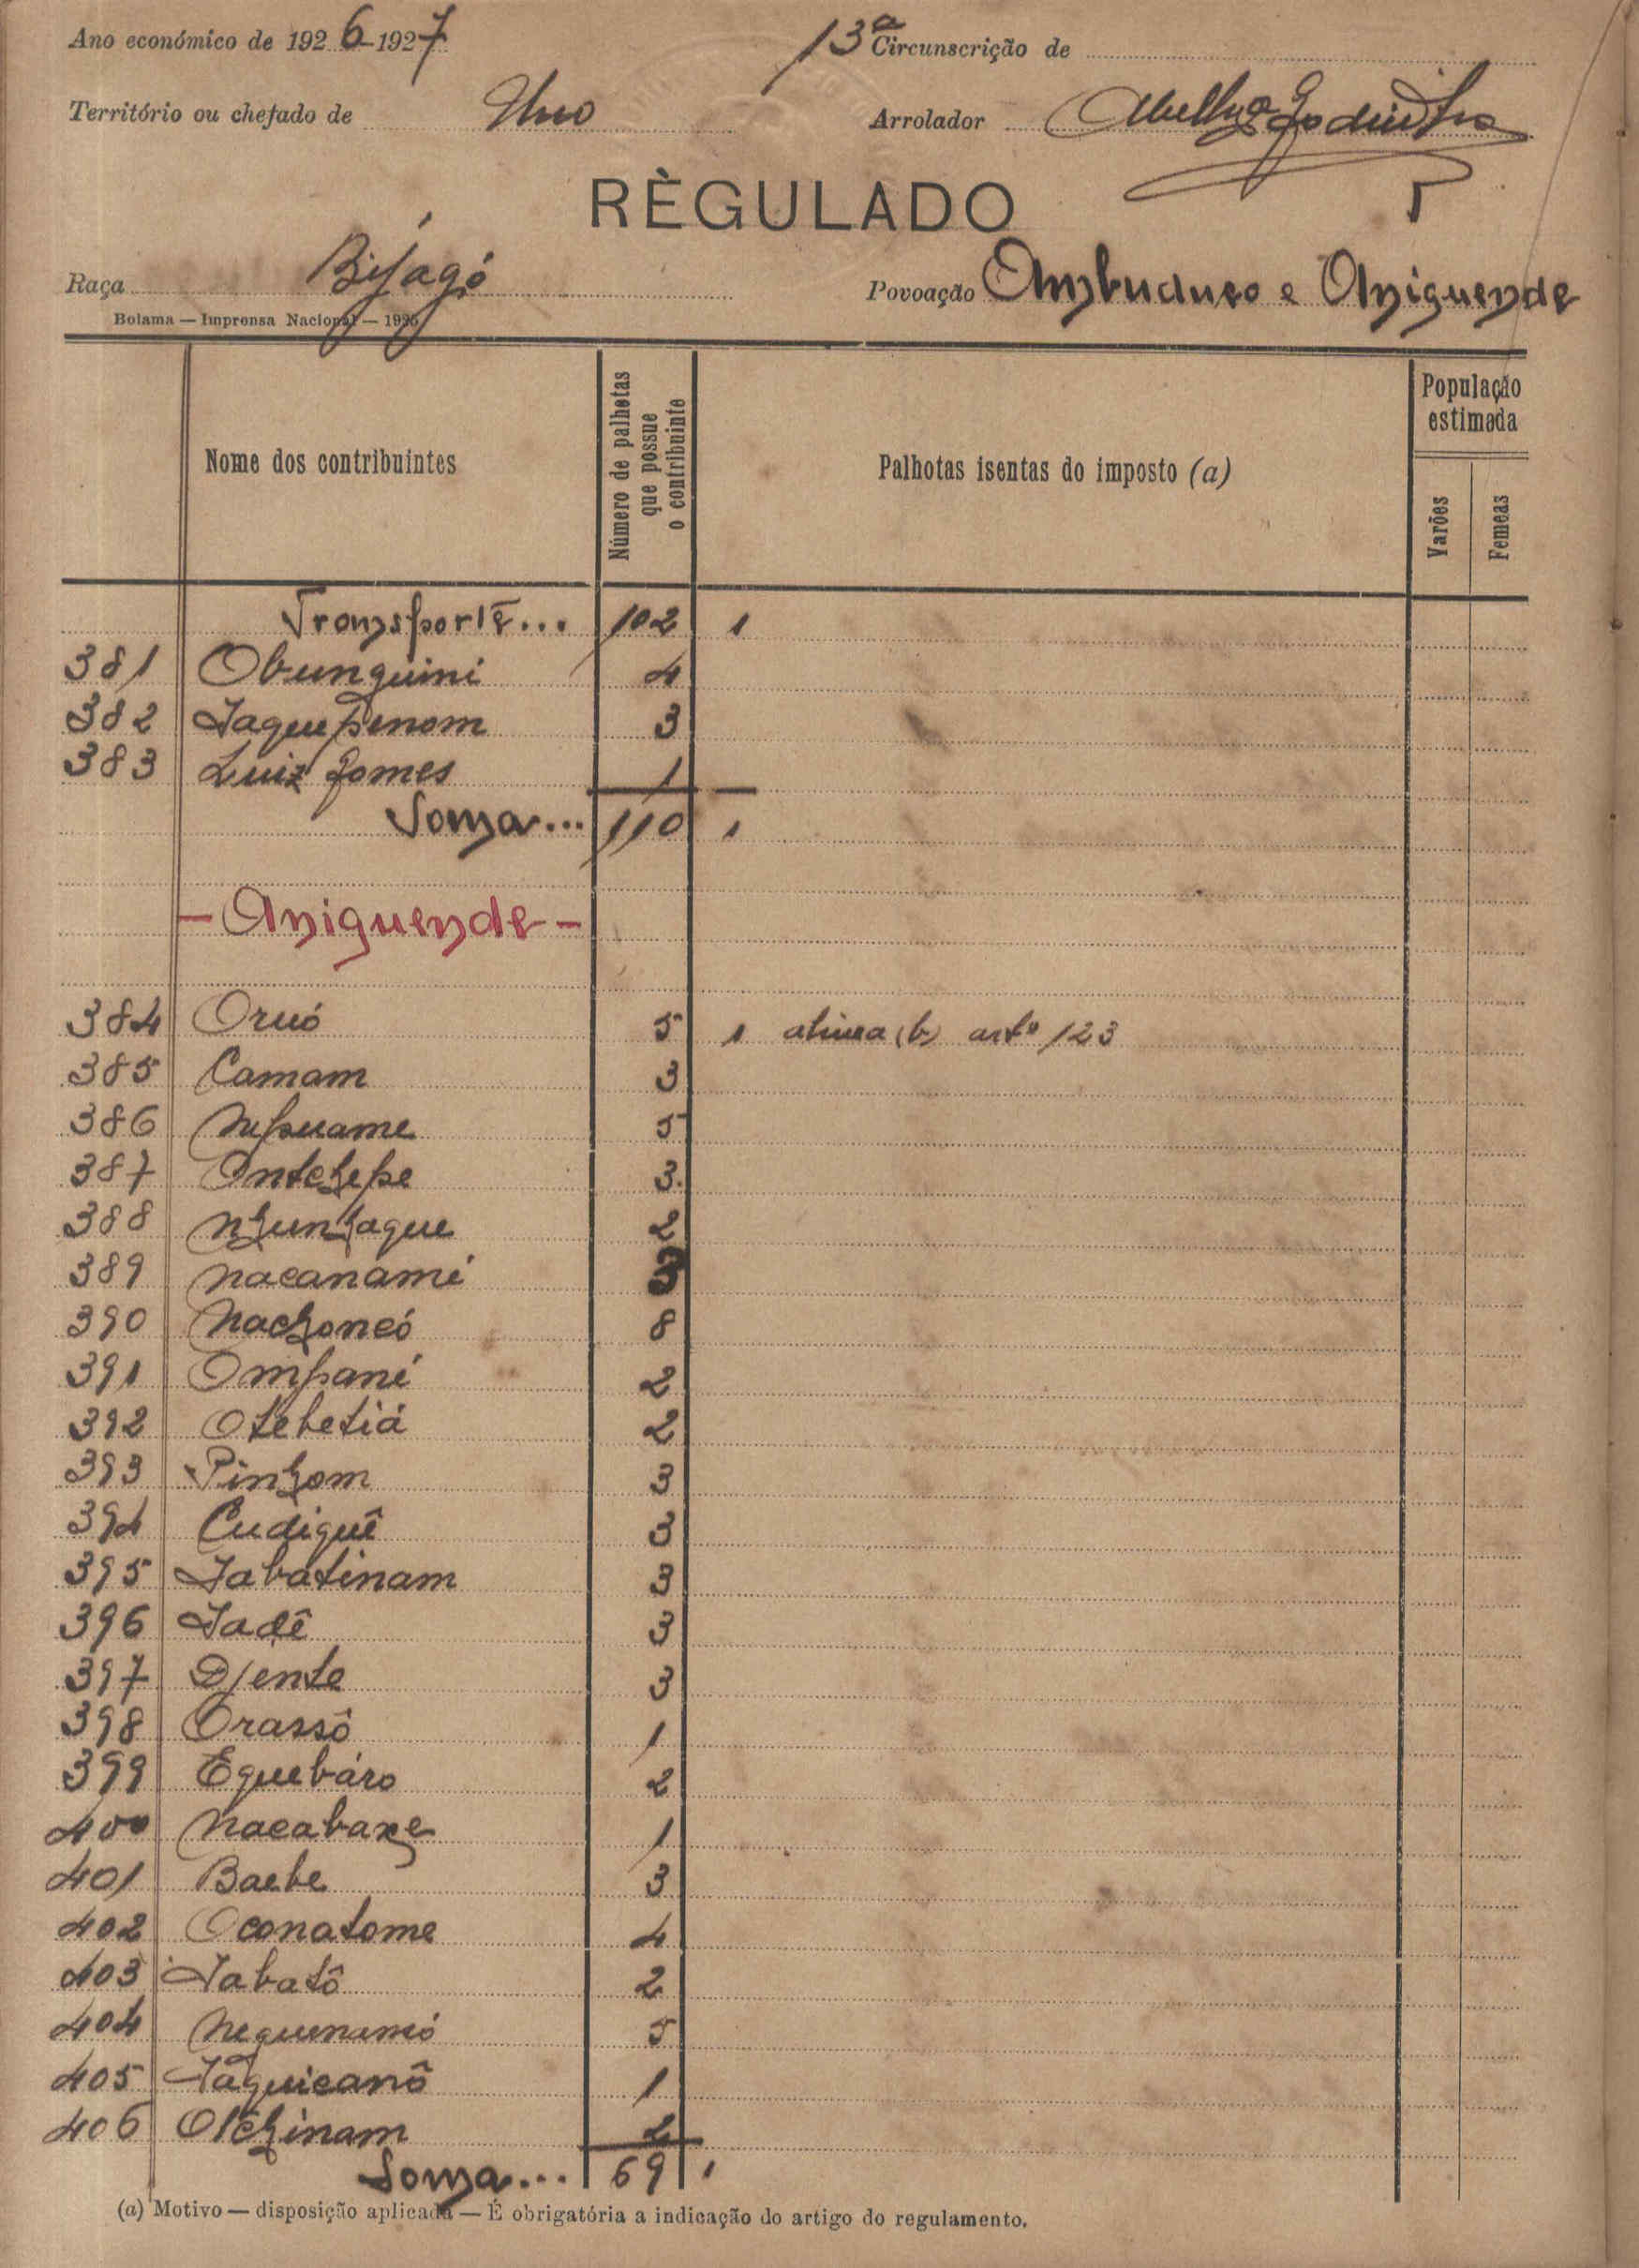 Ano económico de 1926-1927 13ª Circunscrição de
Território ou chefado de Uno Arrolador
RÈGULADO
Raça Bijagó Povoação Ambuduco e Aniguende
Bolama — Imprensa Nacional — 1925
Nome dos contribuintes
Número de palhotas que possue o contribuinte
Palhotas isentas do imposto (a)
População estimada
Varões Femeas
Transporte... 102 1
381 Obunguini 4
382 Jaquepenom 3
383 Luiz Gomes 1 —
Soma... 110 1
- Aniguende -
384 Oruó 5 1 alinea (b) artº 123
385 Camam 3
386 Nepuame 5
387 Ontchepe 3.
388 Nhunhaque 2
389 Nacanami 3
390 Nachoneó 8
391 Ompani 2
392 Otebetiá 2
393 Pinhom 3
394 Cudiguê 3
395 Jabatinam 3
396 Jadê 3
397 Djente 3
398 Orassô 1
399 Equebáro 2
400 Nacabane 1
401 Baebe 3
402 Oconatome 4
403 Jabatô 2
404 Neguenamó 5
405 Jaguicanô 1
406 Otchinam 2
Soma... 69 1
(a) Motivo — disposição aplicada — É obrigatória a indicação do artigo do regulamento.